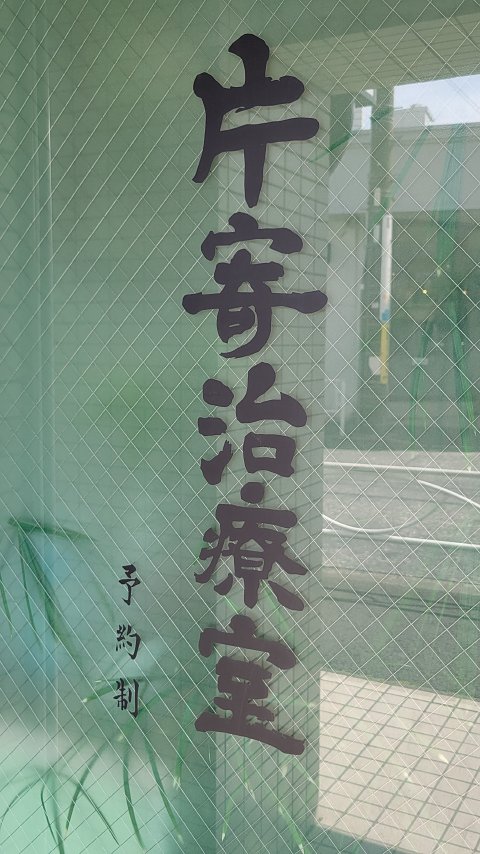 片寄治療室
予約制